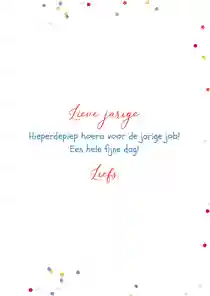 Lieve jarige
Hieperdepiep hoera voor de jarige job!
Een hele fijne dag!
Liefs,